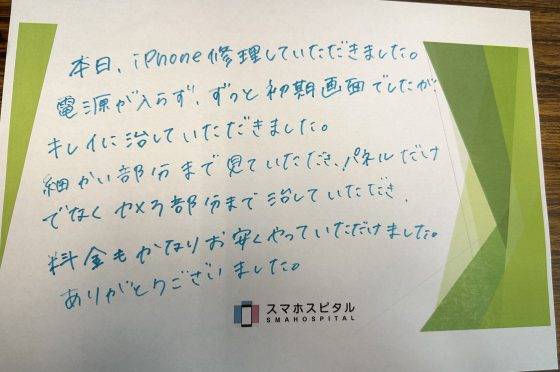 本日、iPhone修理していただきました。
電源が入らず、ずっと初期画面でしたが
キレイに治していただきました。
細かい部分まで見ていただき、パネルだけ
でなくカメラ部分まで治していただき、
料金もかなりお安くやっていただけました。
ありがとうございました。
スマホスピタル
SMAHOSPITAL